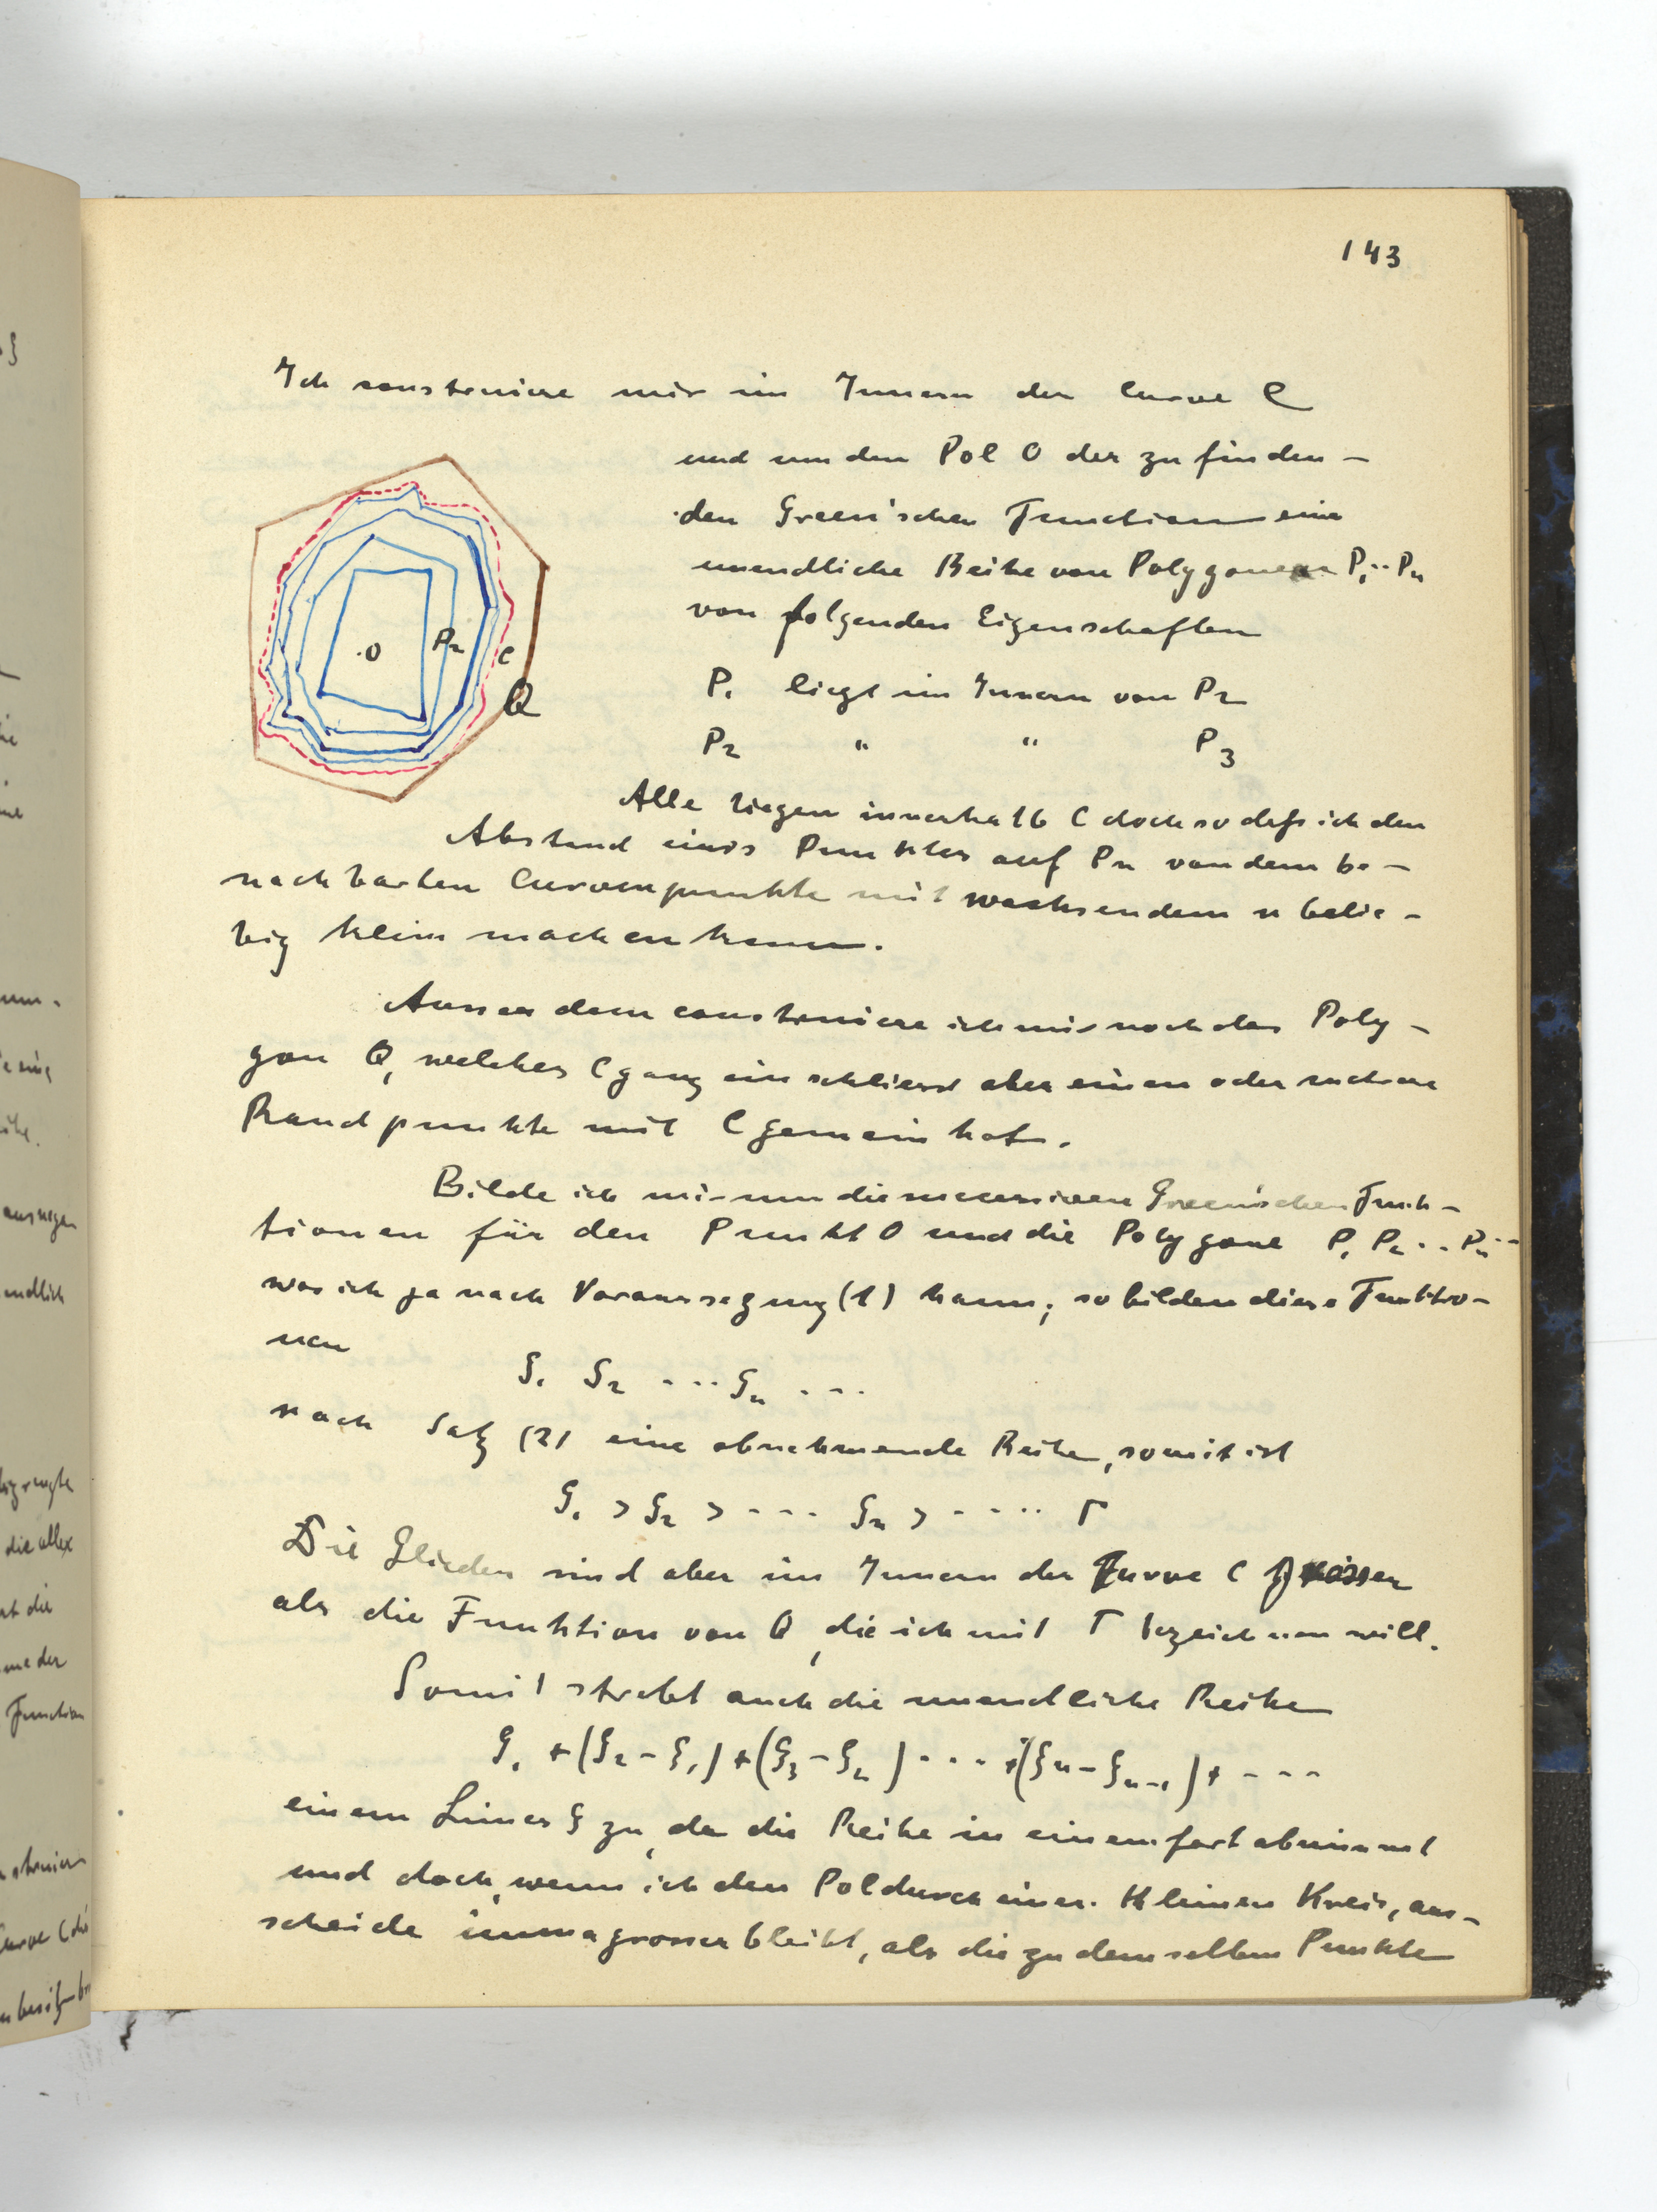 143
Ich construiere mir im Innern der Curve C
und um den Pol O der zu finden-
den Green'schen Function eine
unendliche Reihe von Polygonen P₁..Pn
von folgenden Eigenschaften
P₁ liegt im Innern von P₂
P₂ " " P₃
O P₂ C Q
Alle liegen innerhalb C doch so dass ich den
Abstand eines Punktes auf Pn von dem be-
nachbarten Curvenpunkte mit wachsendem n belie-
big klein machen kann.
Ausserdem construiere ich mir noch das Poly-
gon Q, welches C ganz einschliesst aber einen oder mehrere
Randpunkte mit C gemein hat.
Bilde ich mir nun die successiven Green'schen Funk-
tionen für den Punkt O und die Polygone P₁ P₂ .. Pn ..
was ich ja nach Voraussezung (1) kann; so bilden diese Funktio-
nen
g₁ g₂ ... gn ...
nach Satz (2) eine abnehmende Reihe, somit ist
g₁ > g₂ > ... gn > .... Γ
Die Glieder sind aber im Innern der Kurve C grösser
als die Funktion von Q, die ich mit Γ bezeichnen will.
Somit strebt auch die unendliche Reihe
g₁ + (g₂ - g₁) + (g₃ - g₂) .... + (gn - gn-1) + ....
einem Limes g zu, da die Reihe in einem fort abnimmt
und doch, wenn ich den Pol durch einen kleinen Kreis, aus-
scheide immer grosser bleibt, als die zu demselben Punkte